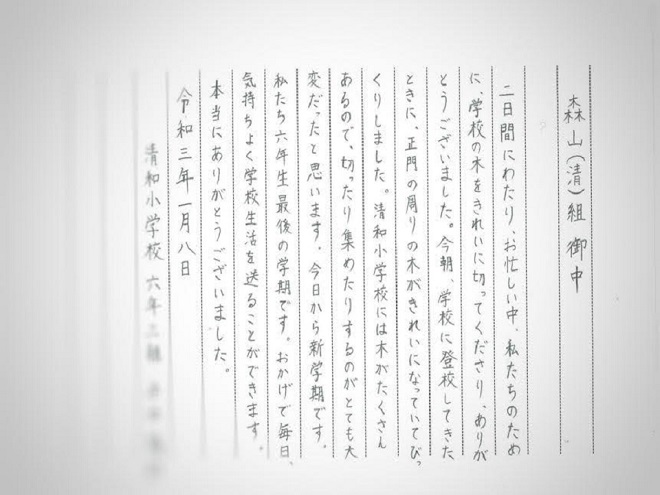 森山(清)組 御中
二日間にわたり、お忙しい中、私たちのため
に、学校の木をきれいに切ってくださり、ありが
とうございました。今朝、学校に登校してきた
ときに、正門の周りの木がきれいになっていてびっ
くりしました。清和小学校には木がたくさん
あるので、切ったり集めたりするのがとても大
変だったと思います。今日から新学期です。
私たち六年生最後の学期です。おかげで毎日、
気持ちよく学校生活を送ることができます。
本当にありがとうございました。
令和三年一月八日
清和小学校 六年二組